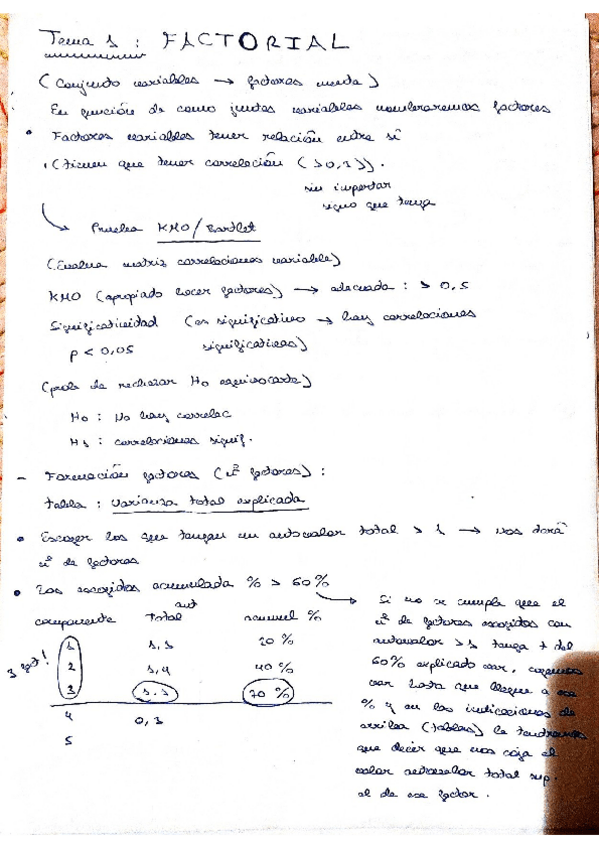 Tema 1 : FACTORIAL
(Conjunto variables → factores menta)
En función de como juntes variables nombraremos factores
• Factores variables tener relación entre sí
• (tienen que tener correlación (>0,3)).
sin importar
signo que tenga
Prueba KMO/Bartlet
(Evalua matriz correlaciones variable)
KMO (apropiado hacer factores) → adecuada : > 0,5
Significatividad (es significativo → hay correlaciones
p < 0,05 significativas)
(prob de rechazar Ho equivocarte)
Ho : No hay correlac
H1 : correlaciones signif.
- Formación factores (nº factores) :
tabla : varianza total explicada
• Escoger los que tengan un autovalor total > 1 → nos dará
nº de factores
• Los escogidos acumulada % > 60%
aut
componente Total acumul %
1 1,3 20 %
2 1,4 40 %
3 1.1 70 %
4 0,3
5
3 fact!
Si no se cumple que el
nº de factores escogidos con
autovalor >1 tenga + del
60% explicado var, cogemos
var hasta que llegue a ese
% y en las indicaciones de
arriba (tablas) le tendremos
que decir que nos coja el
valor autovalor total sup.
al de ese factor.